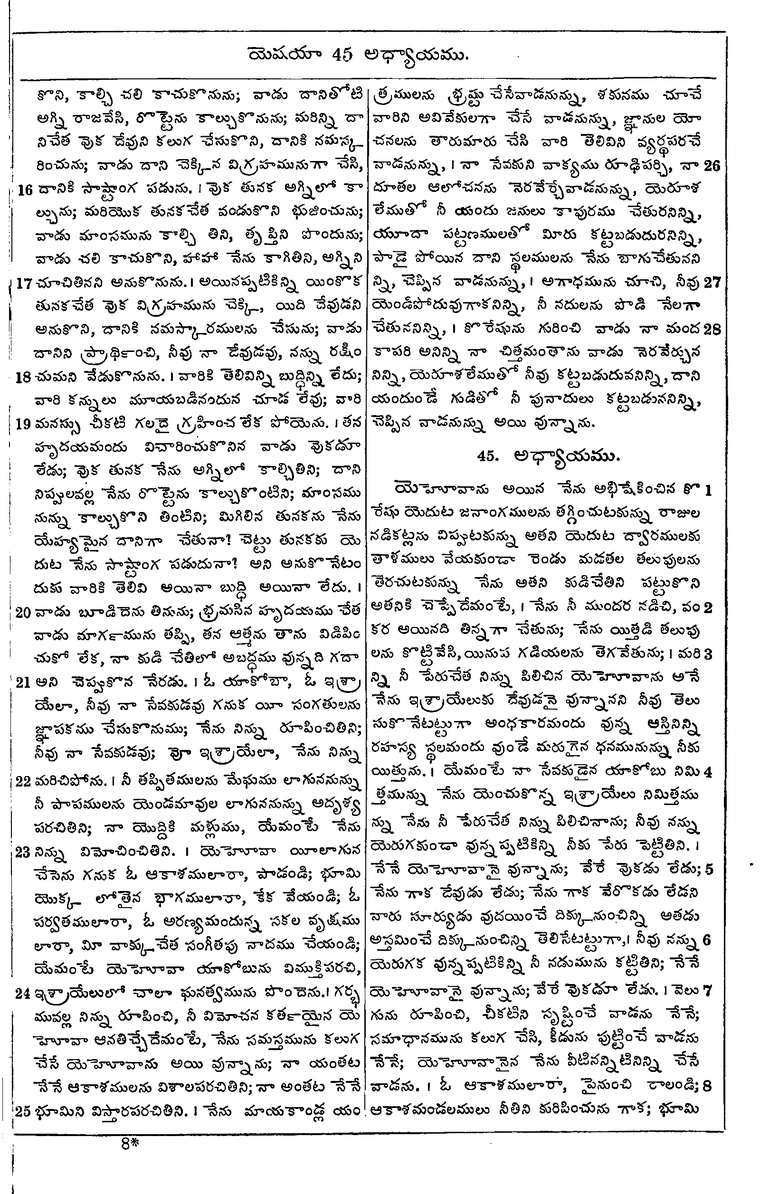 యెషయా 45 అధ్యాయము.
కొని, కాల్చి చలి కాచుకొనును; వాడు దానితోటి
అగ్ని రాజవేసి, రొట్టెను కాల్చుకొనును; మరిన్ని దా
నిచేత వుక దేవుని కలుగ చేసుకొని, దానికి నమస్క
రించును; వాడు దాని చెక్కిన విగ్రహమునుగా చేసి,
16 దానికి సాష్టాంగ పడును. । వుక తునక అగ్నిలో కా
ల్చును; మరియొక తునకచేత వండుకొని భుజించును;
వాడు మాంసమును కాల్చి తిని, తృప్తిని పొందును;
వాడు చలి కాచుకొని, హాహా నేను కాగితిని, అగ్నిని
17 చూచితినని అనుకొనును. । అయినప్పటికిన్ని యింకొక
తునకచేత వుక విగ్రహమును చెక్కి, యిది దేవుడని
అనుకొని, దానికి నమస్కారములను చేసును; వాడు
దానిని ప్రార్థించి, నీవు నా దేవుడవు, నన్ను రక్షిం
18 చుమని వేడుకొనును. । వారికి తెలివిన్ని బుద్ధిన్ని లేదు;
వారి కన్నులు మూయబడినందున చూడ లేవు; వారి
19 మనస్సు చీకటి గలదై గ్రహించ లేక పోయెను. । తన
హృదయమందు విచారించుకొనిన వాడు వుకడూ
లేడు; వుక తునక నేను అగ్నిలో కాల్చితిని; దాని
నిప్పులవల్ల నేను రొట్టెను కాల్చుకొంటిని; మాంసము
నున్ను కాల్చుకొని తింటిని; మిగిలిన తునకను నేను
యేహ్యమైన దానిగా చేతునా! చెట్టు తునకకు యె
దుట నేను సాష్టాంగ పడుదునా? అని అనుకొనేటం
దుకు వారికి తెలివి అయినా బుద్ధి అయినా లేదు. ।
20 వాడు బూడిదెను తినును; భ్రమసిన హృదయము చేత
వాడు మార్గమును తప్పి, తన ఆత్మను తాను విడిపిం
చుకో లేక, నా కుడి చేతిలో అబద్ధము వున్నది గదా
21 అని చెప్పుకొన నేరడు. । ఓ యాకోబా, ఓ ఇశ్రా
యేలా, నీవు నా సేవకుడవు గనుక యీ సంగతులను
జ్ఞాపకము చేసుకొనుము; నేను నిన్ను రూపించితిని;
నీవు నా సేవకుడవు; వో ఇశ్రాయేలా, నేను నిన్ను
22 మరిచిపోను. । నీ తప్పితములను మేఘము లాగుననున్ను
నీ పాపములను యెండమావుల లాగుననున్ను అదృశ్య
పరచితిని; నా యొద్దికి మళ్లుము, యేమంటే నేను
23 నిన్ను విమోచించితిని. । యెహోవా యీలాగున
చేసెను గనుక ఓ ఆకాశములారా, పాడండి; భూమి
యొక్క లోతైన భాగములారా, కేక వేయండి; ఓ
పర్వతములారా, ఓ అరణ్యమందున్న సకల వృక్షము
లారా, మీ వాక్కుచేత సంగీతపు నాదము చేయండి;
యేమంటే యెహోవా యాకోబును విముక్తిపరచి,
24 ఇశ్రాయేలులో చాలా ఘనత్వమును పొందెను. । గర్భ
మువల్ల నిన్ను రూపించి, నీ విమోచన కర్తయైన యె
హోవా ఆనతిచ్చేదేమంటే, నేను సమస్తమును కలుగ
చేసే యెహోవాను అయి వున్నాను; నా యంతట
నేనే ఆకాశములను విశాలపరచితిని; నా అంతట నేనే
25 భూమిని విస్తారపరచితిని. । నేను మాయకాండ్ల యం
త్రములను భ్రష్టు చేసేవాడనున్ను, శకునము చూచే
వారిని అవివేకులగా చేసే వాడనున్ను, జ్ఞానుల యో
చనలను తారుమారు చేసి వారి తెలివిని వ్యర్థపరచే
వాడనున్ను, । నా సేవకుని వాక్యము రూఢిపర్చి, నా 26
దూతల ఆలోచనను నెరవేర్చేవాడనున్ను, యెరూశ
లేముతో నీ యందు జనులు కాపురము చేతురనిన్ని,
యూదా పట్టణములతో మీరు కట్టబడుదురనిన్ని,
పాడై పోయిన దాని స్థలములను నేను బాగుచేతునని
న్ని, చెప్పిన వాడనున్ను, । అగాధమును చూచి, నీవు 27
యెండిపోదువుగాకనిన్ని, నీ నదులను పొడి నేలగా
చేతుననిన్ని, । కొరేషును గురించి వాడు నా మంద 28
కాపరి అనిన్ని నా చిత్తమంతాను వాడు నెరవేర్చున
నిన్ని, యెరూశలేముతో నీవు కట్టబడుదువనిన్ని, దాని
యందుండే గుడితో నీ పునాదులు కట్టబడుననిన్ని,
చెప్పిన వాడనున్ను అయి వున్నాను.
45. అధ్యాయము.
యెహోవాను అయిన నేను అభిషేకించిన కొ 1
రేషు యెదుట జనాంగములను తగ్గించుటకున్ను రాజుల
నడికట్లను విప్పుటకున్ను అతని యెదుట ద్వారములకు
తాళములు వేయకుండా రెండు మడతల తలుపులను
తెరచుటకున్ను నేను అతని కుడిచేతిని పట్టుకొని
అతనికి చెప్పేదేమంటే, । నేను నీ ముందర నడిచి, వం 2
కర అయినది తిన్నగా చేతును; నేను యిత్తడి తలుపు
లను కొట్టివేసి, యినుప గడియలను తెగవేతును; । మరి 3
న్ని నీ పేరుచేత నిన్ను పిలిచిన యెహోవాను అనే
నేను ఇశ్రాయేలుకు దేవుడనై వున్నానని నీవు తెలు
సుకొనేటట్టుగా అంధకారమందు వున్న ఆస్తినిన్ని
రహస్య స్థలమందు వుండే మరుగైన ధనమునున్ను నీకు
యిత్తును. । యేమంటే నా సేవకుడైన యాకోబు నిమి 4
త్తమున్ను నేను యెంచుకొన్న ఇశ్రాయేలు నిమిత్తము
న్ను నేను నీ పేరుచేత నిన్ను పిలిచినాను; నీవు నన్ను
యెరుగకుండా వున్నప్పటికిన్ని నీకు పేరు పెట్టితిని. ।
నేనే యెహోవానై వున్నాను; వేరే వుకడు లేడు; 5
నేను గాక దేవుడు లేడు; నేను గాక వేరొకడు లేడని
వారు సూర్యుడు వుదయించే దిక్కునుంచిన్ని అతడు
అస్తమించే దిక్కునుంచిన్ని తెలిసేటట్టుగా, । నీవు నన్ను 6
యెరుగక వున్నప్పటికిన్ని నీ నడుమును కట్టితిని; నేనే
యెహోవానై వున్నాను; వేరే వుకడూ లేడు. । వెలు 7
గును రూపించి, చీకటిని సృష్టించే వాడను నేనే;
సమాధానమును కలుగ చేసి, కీడును పుట్టించే వాడను
నేనే; యెహోవానైన నేను వీటినన్నిటినిన్ని చేసే
వాడను. । ఓ ఆకాశములారా, పైనుంచి రాలండి; 8
ఆకాశమండలములు నీతిని కురిపించును గాక; భూమి
8*